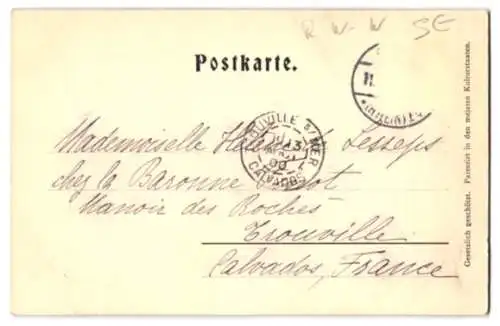 R W-W SE
Postkarte.
TROUVILLE S/MER
13
00
CALVADOS
Mademoiselle Hélène de Lesseps
chez la Baronne
Manoir des Roches
Trouville
Calvados, France
Gesetzlich geschützt. Patentirt in den meisten Kulturstaaten.